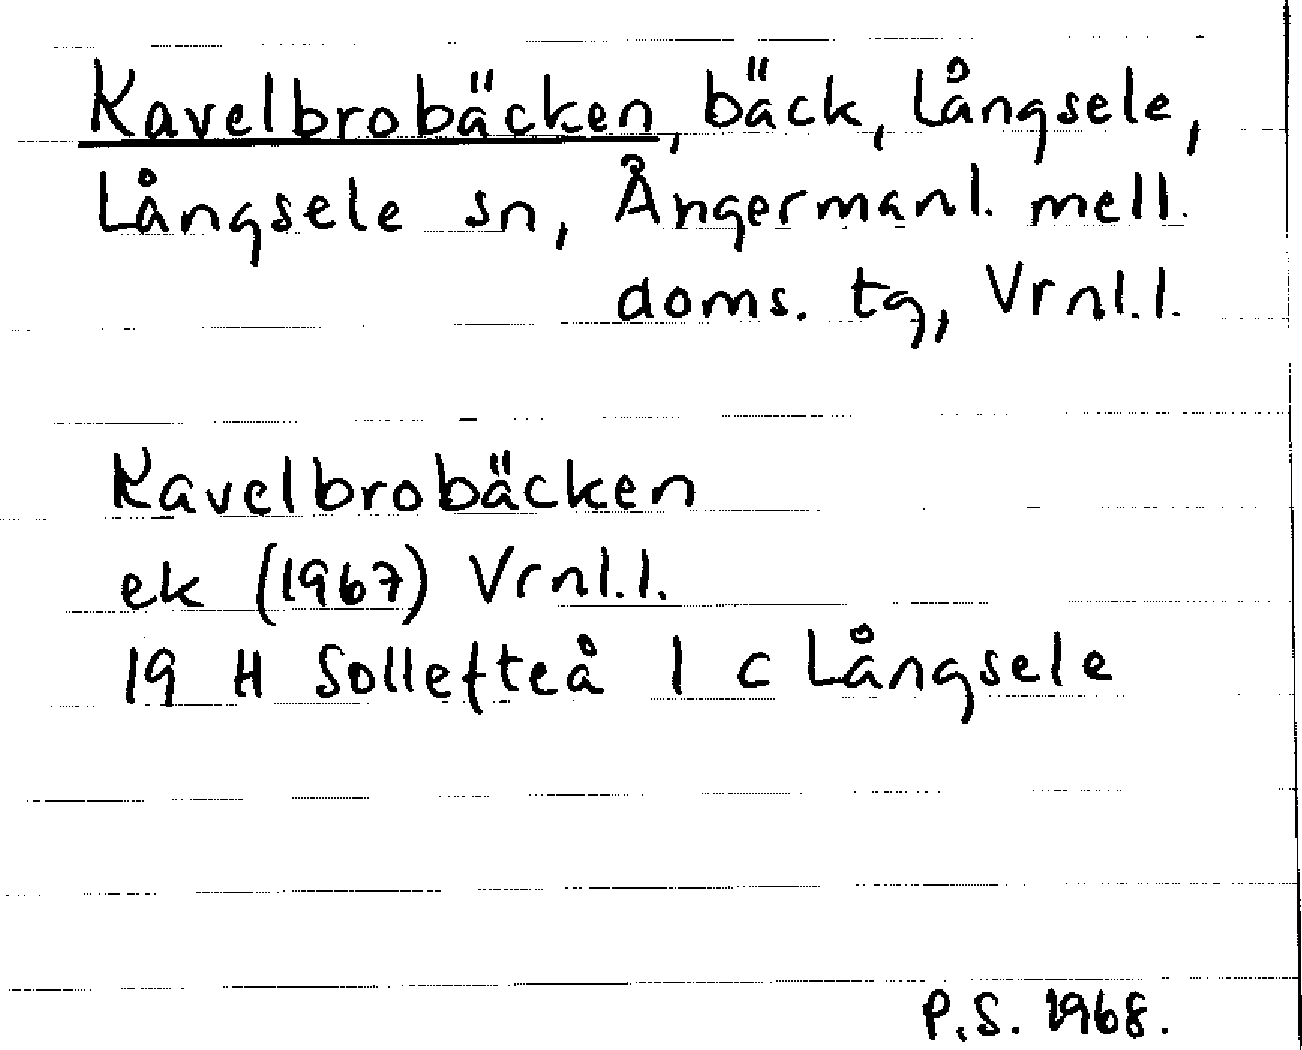 Kavelbrobäcken, bäck, Långsele,
Långsele sn, Ångermanl. mell.
doms. tg, Vrnl.l.
Kavelbrobäcken
ek (1967) Vrnl.l.
19 H Sollefteå 1 c Långsele
P.S. 1968.